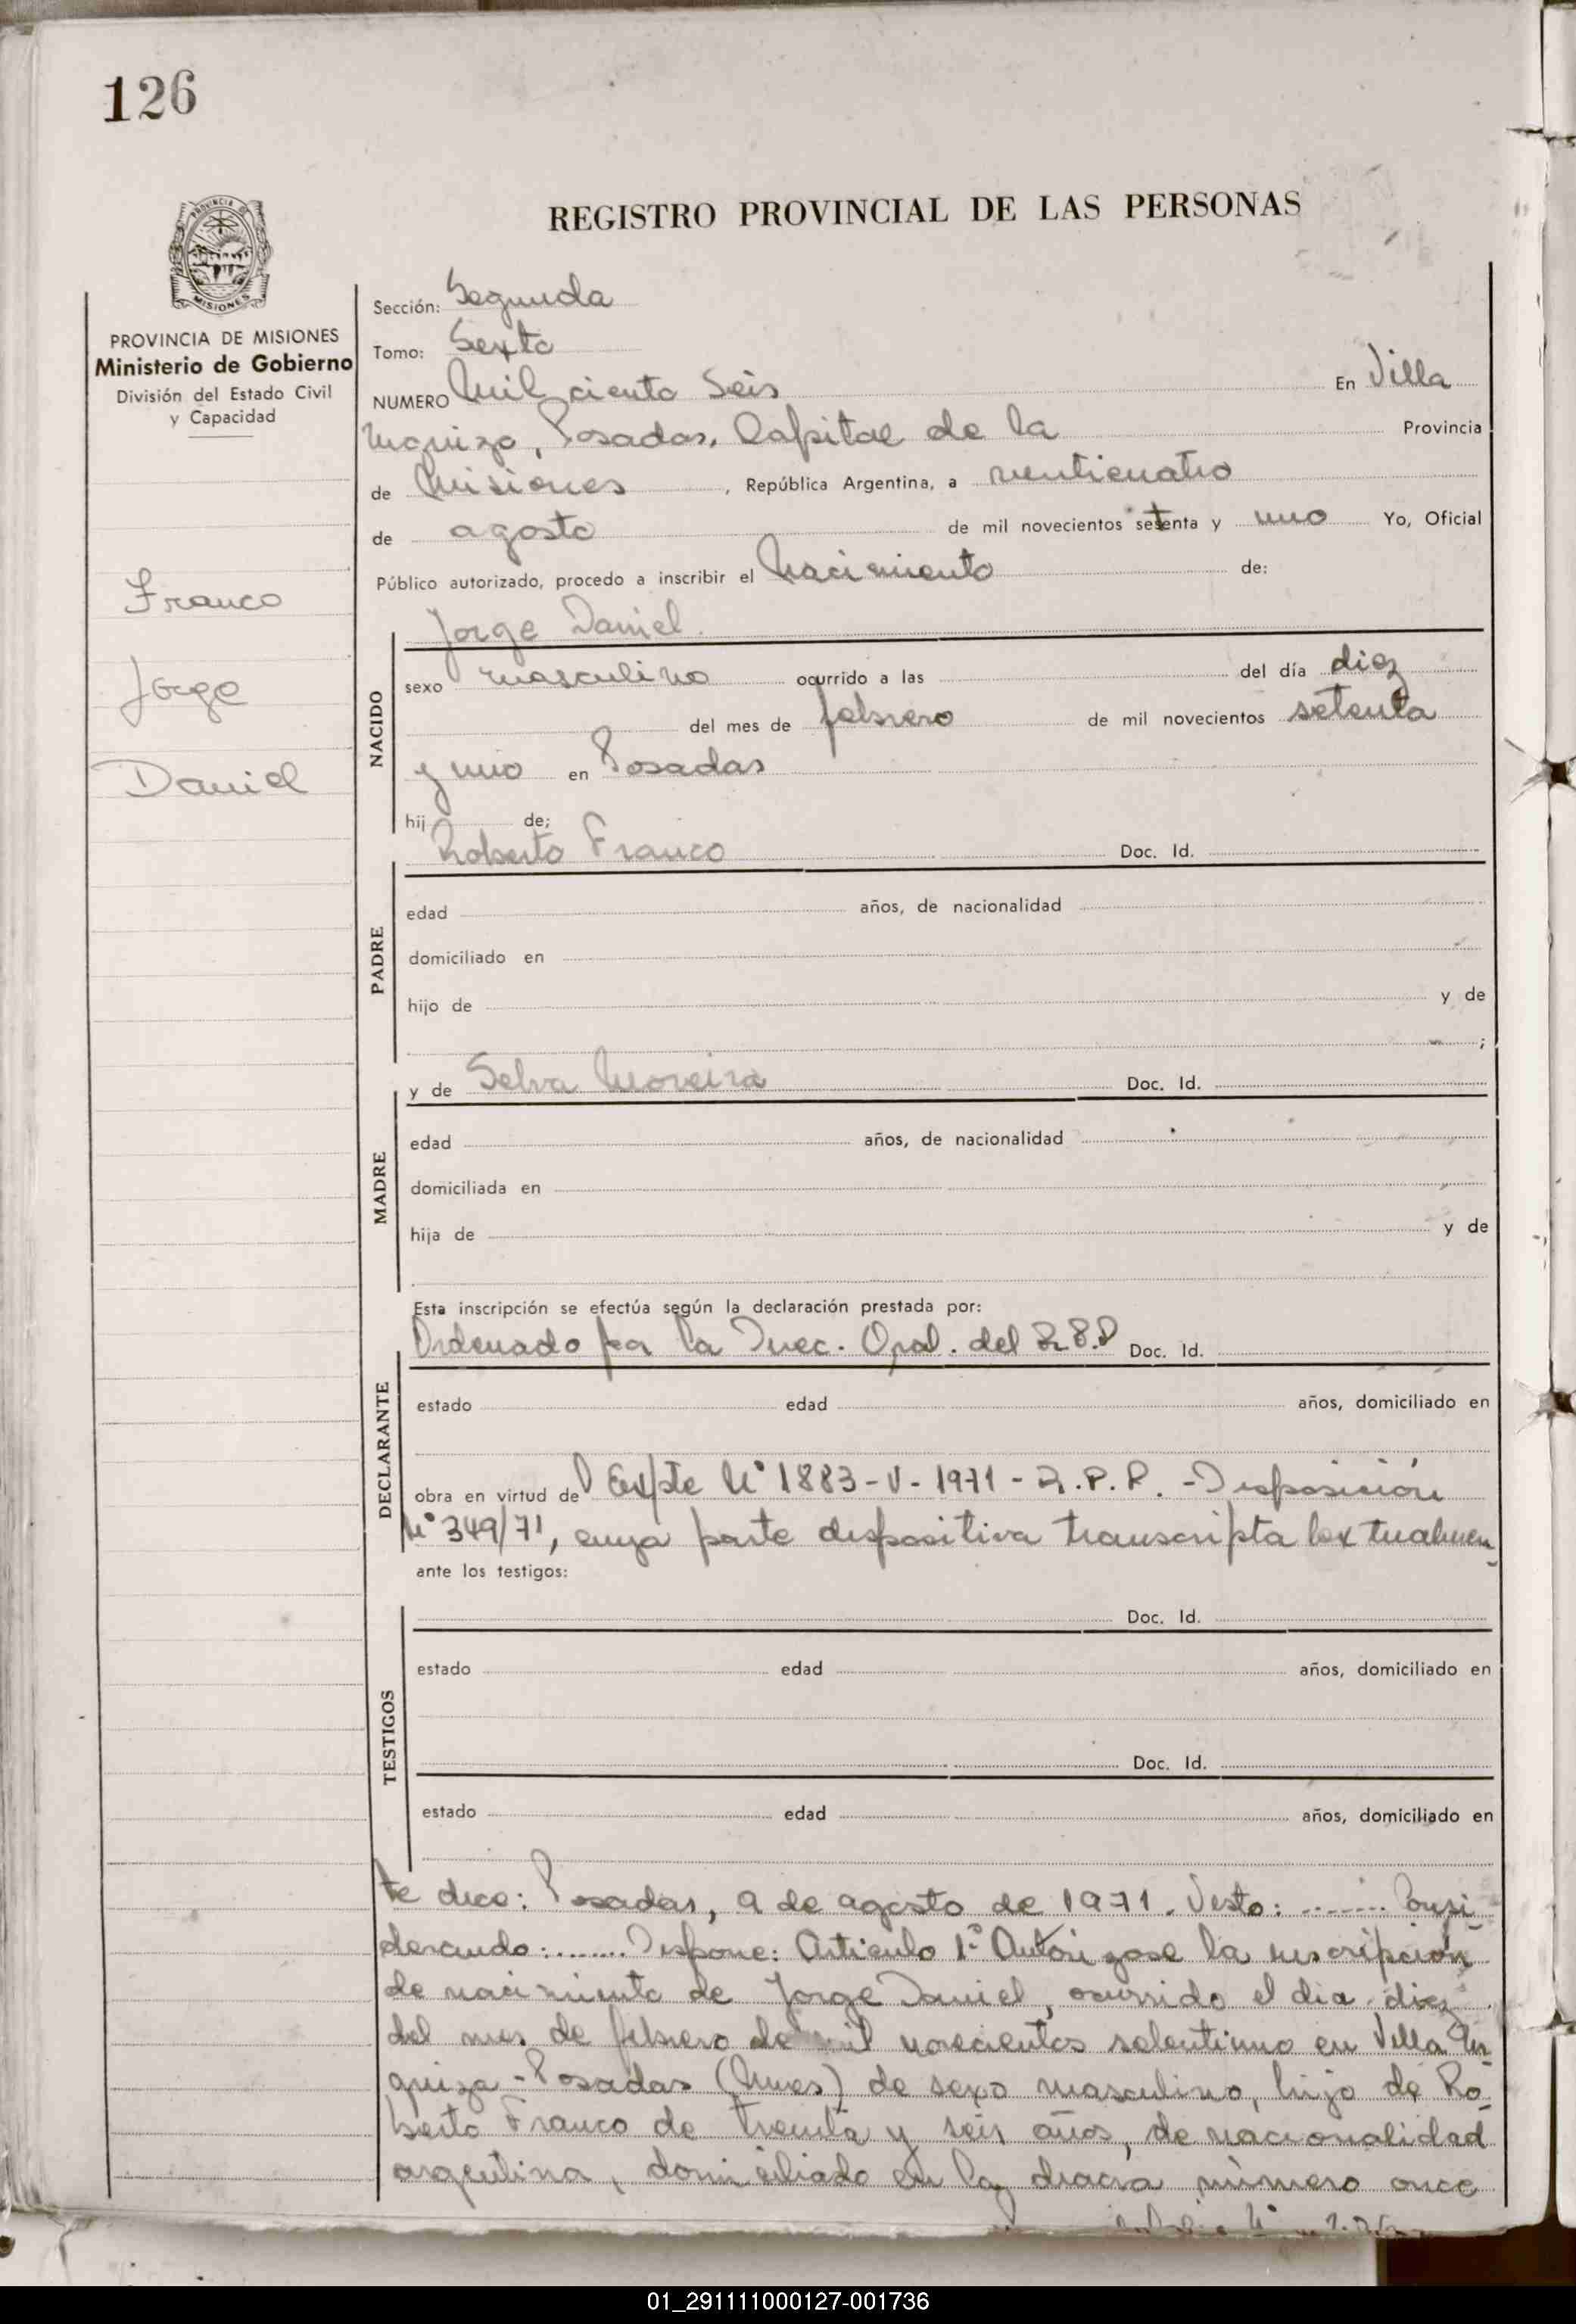 126
REGISTRO PROVINCIAL DE LAS PERSONAS
PROVINCIA DE
MISIONES
PROVINCIA DE MISIONES
Ministerio de Gobierno
División del Estado Civil
y Capacidad
Franco
Jorge
Daniel
Sección: Segunda
Tomo: Sexto
NUMERO Mil ciento Seis En Villa
Urquiza, Posadas, Capital de la Provincia
de Misiones, República Argentina, a venticuatro
de agosto de mil novecientos setenta y uno Yo, Oficial
Público autorizado, procedo a inscribir el Nacimiento de:
Jorge Daniel
NACIDO
sexo masculino ocurrido a las del día diez
del mes de febrero de mil novecientos setenta
y uno en Posadas
hij de;
Roberto Franco Doc. Id.
PADRE
edad años, de nacionalidad
domiciliado en
hijo de y de
;
y de Selva Moreira Doc. Id.
MADRE
edad años, de nacionalidad
domiciliada en
hija de y de
Esta inscripción se efectúa según la declaración prestada por:
Ordenado por la Direc. Gral. del R.P.P Doc. Id.
DECLARANTE
estado edad años, domiciliado en
obra en virtud de Expte Nº 1883-V-1971-R.P.P. - Disposición
Nº 349/71, cuya parte dispositiva transcripta textualmen-
ante los testigos:
Doc. Id.
TESTIGOS
estado edad años, domiciliado en
Doc. Id.
estado edad años, domiciliado en
te dice: Posadas, 9 de agosto de 1971. Visto: ....... Consi-
derando: ....... Dispone: Articulo 1º Autorizase la inscripción
de nacimiento de Jorge Daniel, ocurrido el dia diez
del mes de febrero de mil novecientos setentiuno en Villa Ur-
quiza - Posadas (Mnes) de sexo masculino, hijo de Ro-
berto Franco de treinta y seis años, de nacionalidad
argentina, domiciliado en la chacra número once
01_291111000127-001736